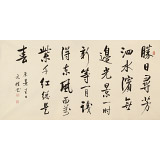 勝日尋芳
泗水濱無
邊光景一時
新等閒識
得東風面萬
紫千紅總是
春